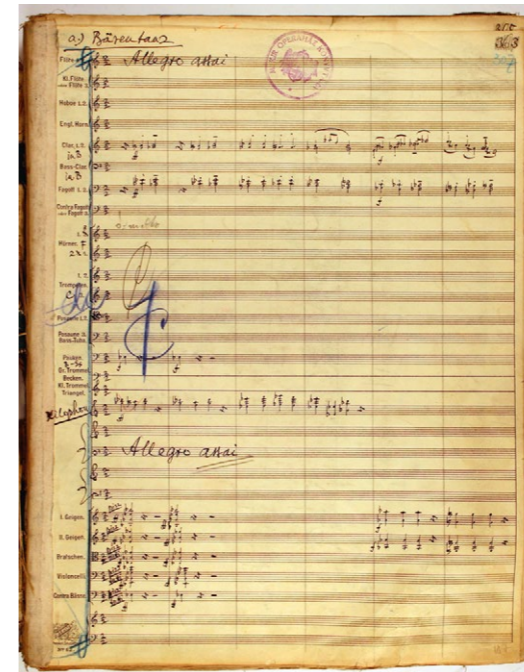 a.) Bärentanz
363
Allegro assai
Flöte
Kl. Flöte
Hoboe 1.2.
Engl. Horn.
Clar. 1.2.
in B
Bass-Clar.
in B
Fagott 1.2.
Contra Fagott
Hörner. F
1. 2.
Trompeten.
Posaune 1.2.
Posaune 3.
Bass-Tuba.
Pauken.
Gr. Trommel
Becken.
Kl. Trommel
Triangel.
Xilophon
Allegro assai
I. Geigen.
II. Geigen.
Bratschen.
Violoncell.
Contra Bässe.